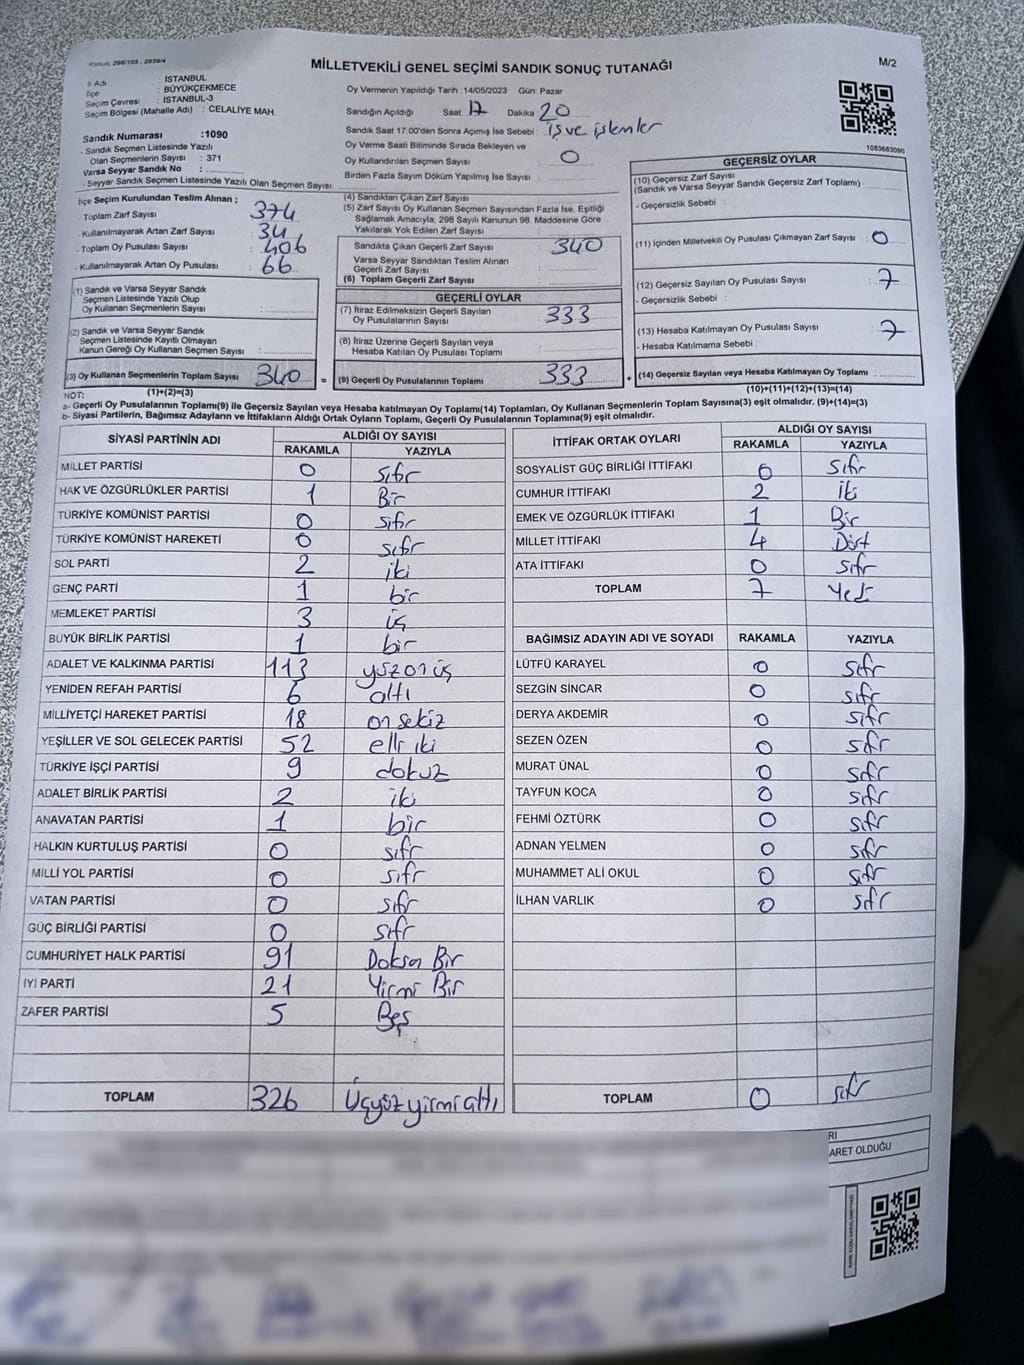 Kanun, 298/105 , 2839/4
MİLLETVEKİLİ GENEL SEÇİMİ SANDIK SONUÇ TUTANAĞI
M/2
İl Adı : İSTANBUL
İlçe : BÜYÜKÇEKMECE
Seçim Çevresi : İSTANBUL-3
Seçim Bölgesi (Mahalle Adı) : CELALİYE MAH.
Sandık Numarası :1090
- Sandık Seçmen Listesinde Yazılı
Olan Seçmenlerin Sayısı : 371
Varsa Seyyar Sandık No :
- Seyyar Sandık Seçmen Listesinde Yazılı Olan Seçmen Sayısı:
Oy Vermenin Yapıldığı Tarih :14/05/2023 Gün: Pazar
Sandığın Açıldığı Saat: 17 Dakika 20
Sandık Saat 17:00'den Sonra Açımış İse Sebebi : iş ve işlemler
Oy Verme Saati Bitiminde Sırada Bekleyen ve
Oy Kullandırılan Seçmen Sayısı : 0
Birden Fazla Sayım Döküm Yapılmış İse Sayısı :
1083683090
İlçe Seçim Kurulundan Teslim Alınan ;
- Toplam Zarf Sayısı : 374
- Kullanılmayarak Artan Zarf Sayısı : 34
- Toplam Oy Pusulası Sayısı : 406
- Kullanılmayarak Artan Oy Pusulası : 66
(1) Sandık ve Varsa Seyyar Sandık
Seçmen Listesinde Yazılı Olup
Oy Kullanan Seçmenlerin Sayısı :
(2) Sandık ve Varsa Seyyar Sandık
Seçmen Listesinde Kayıtlı Olmayan
Kanun Gereği Oy Kullanan Seçmen Sayısı :
(3) Oy Kullanan Seçmenlerin Toplam Sayısı : 340
(1)+(2)=(3)
(4) Sandıktan Çıkan Zarf Sayısı :
(5) Zarf Sayısı Oy Kullanan Seçmen Sayısından Fazla İse, Eşitliği
Sağlamak Amacıyla, 298 Sayılı Kanunun 98. Maddesine Göre
Yakılarak Yok Edilen Zarf Sayısı :
Sandıkta Çıkan Geçerli Zarf Sayısı : 340
Varsa Seyyar Sandıktan Teslim Alınan
Geçerli Zarf Sayısı :
(6) Toplam Geçerli Zarf Sayısı :
GEÇERLİ OYLAR
(7) İtiraz Edilmeksizin Geçerli Sayılan
Oy Pusulalarının Sayısı : 333
(8) İtiraz Üzerine Geçerli Sayılan veya
Hesaba Katılan Oy Pusulası Toplamı :
= (9) Geçerli Oy Pusulalarının Toplamı : 333
GEÇERSİZ OYLAR
(10) Geçersiz Zarf Sayısı
(Sandık ve Varsa Seyyar Sandık Geçersiz Zarf Toplamı) :
- Geçersizlik Sebebi :
(11) İçinden Milletvekili Oy Pusulası Çıkmayan Zarf Sayısı : 0
(12) Geçersiz Sayılan Oy Pusulası Sayısı : 7
- Geçersizlik Sebebi :
(13) Hesaba Katılmayan Oy Pusulası Sayısı : 7
- Hesaba Katılmama Sebebi :
+ (14) Geçersiz Sayılan veya Hesaba Katılmayan Oy Toplamı :
(10)+(11)+(12)+(13)=(14)
NOT:
a- Geçerli Oy Pusulalarının Toplamı(9) ile Geçersiz Sayılan veya Hesaba katılmayan Oy Toplamı(14) Toplamları, Oy Kullanan Seçmenlerin Toplam Sayısına(3) eşit olmalıdır. (9)+(14)=(3)
b- Siyasi Partilerin, Bağımsız Adayların ve İttifakların Aldığı Ortak Oyların Toplamı, Geçerli Oy Pusulalarının Toplamına(9) eşit olmalıdır.
SİYASİ PARTİNİN ADI ALDIĞI OY SAYISI
RAKAMLA YAZIYLA
MİLLET PARTİSİ 0 sıfır
HAK VE ÖZGÜRLÜKLER PARTİSİ 1 Bir
TÜRKİYE KOMÜNİST PARTİSİ 0 sıfır
TÜRKİYE KOMÜNİST HAREKETİ 0 sıfır
SOL PARTİ 2 iki
GENÇ PARTİ 1 bir
MEMLEKET PARTİSİ 3 üç
BÜYÜK BİRLİK PARTİSİ 1 bir
ADALET VE KALKINMA PARTİSİ 113 yüzonüç
YENİDEN REFAH PARTİSİ 6 altı
MİLLİYETÇİ HAREKET PARTİSİ 18 on sekiz
YEŞİLLER VE SOL GELECEK PARTİSİ 52 elli iki
TÜRKİYE İŞÇİ PARTİSİ 9 dokuz
ADALET BİRLİK PARTİSİ 2 iki
ANAVATAN PARTİSİ 1 bir
HALKIN KURTULUŞ PARTİSİ 0 sıfır
MİLLİ YOL PARTİSİ 0 sıfır
VATAN PARTİSİ 0 sıfır
GÜÇ BİRLİĞİ PARTİSİ 0 sıfır
CUMHURİYET HALK PARTİSİ 91 Doksan Bir
İYİ PARTİ 21 Yirmi Bir
ZAFER PARTİSİ 5 Beş
TOPLAM 326 Üçyüzyirmialtı
İTTİFAK ORTAK OYLARI ALDIĞI OY SAYISI
RAKAMLA YAZIYLA
SOSYALİST GÜÇ BİRLİĞİ İTTİFAKI 0 sıfır
CUMHUR İTTİFAKI 2 iki
EMEK VE ÖZGÜRLÜK İTTİFAKI 1 Bir
MİLLET İTTİFAKI 4 Dört
ATA İTTİFAKI 0 sıfır
TOPLAM 7 Yedi
BAĞIMSIZ ADAYIN ADI VE SOYADI RAKAMLA YAZIYLA
LÜTFÜ KARAYEL 0 sıfır
SEZGİN SİNCAR 0 sıfır
DERYA AKDEMİR 0 sıfır
SEZEN ÖZEN 0 sıfır
MURAT ÜNAL 0 sıfır
TAYFUN KOCA 0 sıfır
FEHMİ ÖZTÜRK 0 sıfır
ADNAN YELMEN 0 sıfır
MUHAMMET ALİ OKUL 0 sıfır
İLHAN VARLIK 0 sıfır
TOPLAM 0 sıfır
RI
ARET OLDUĞU